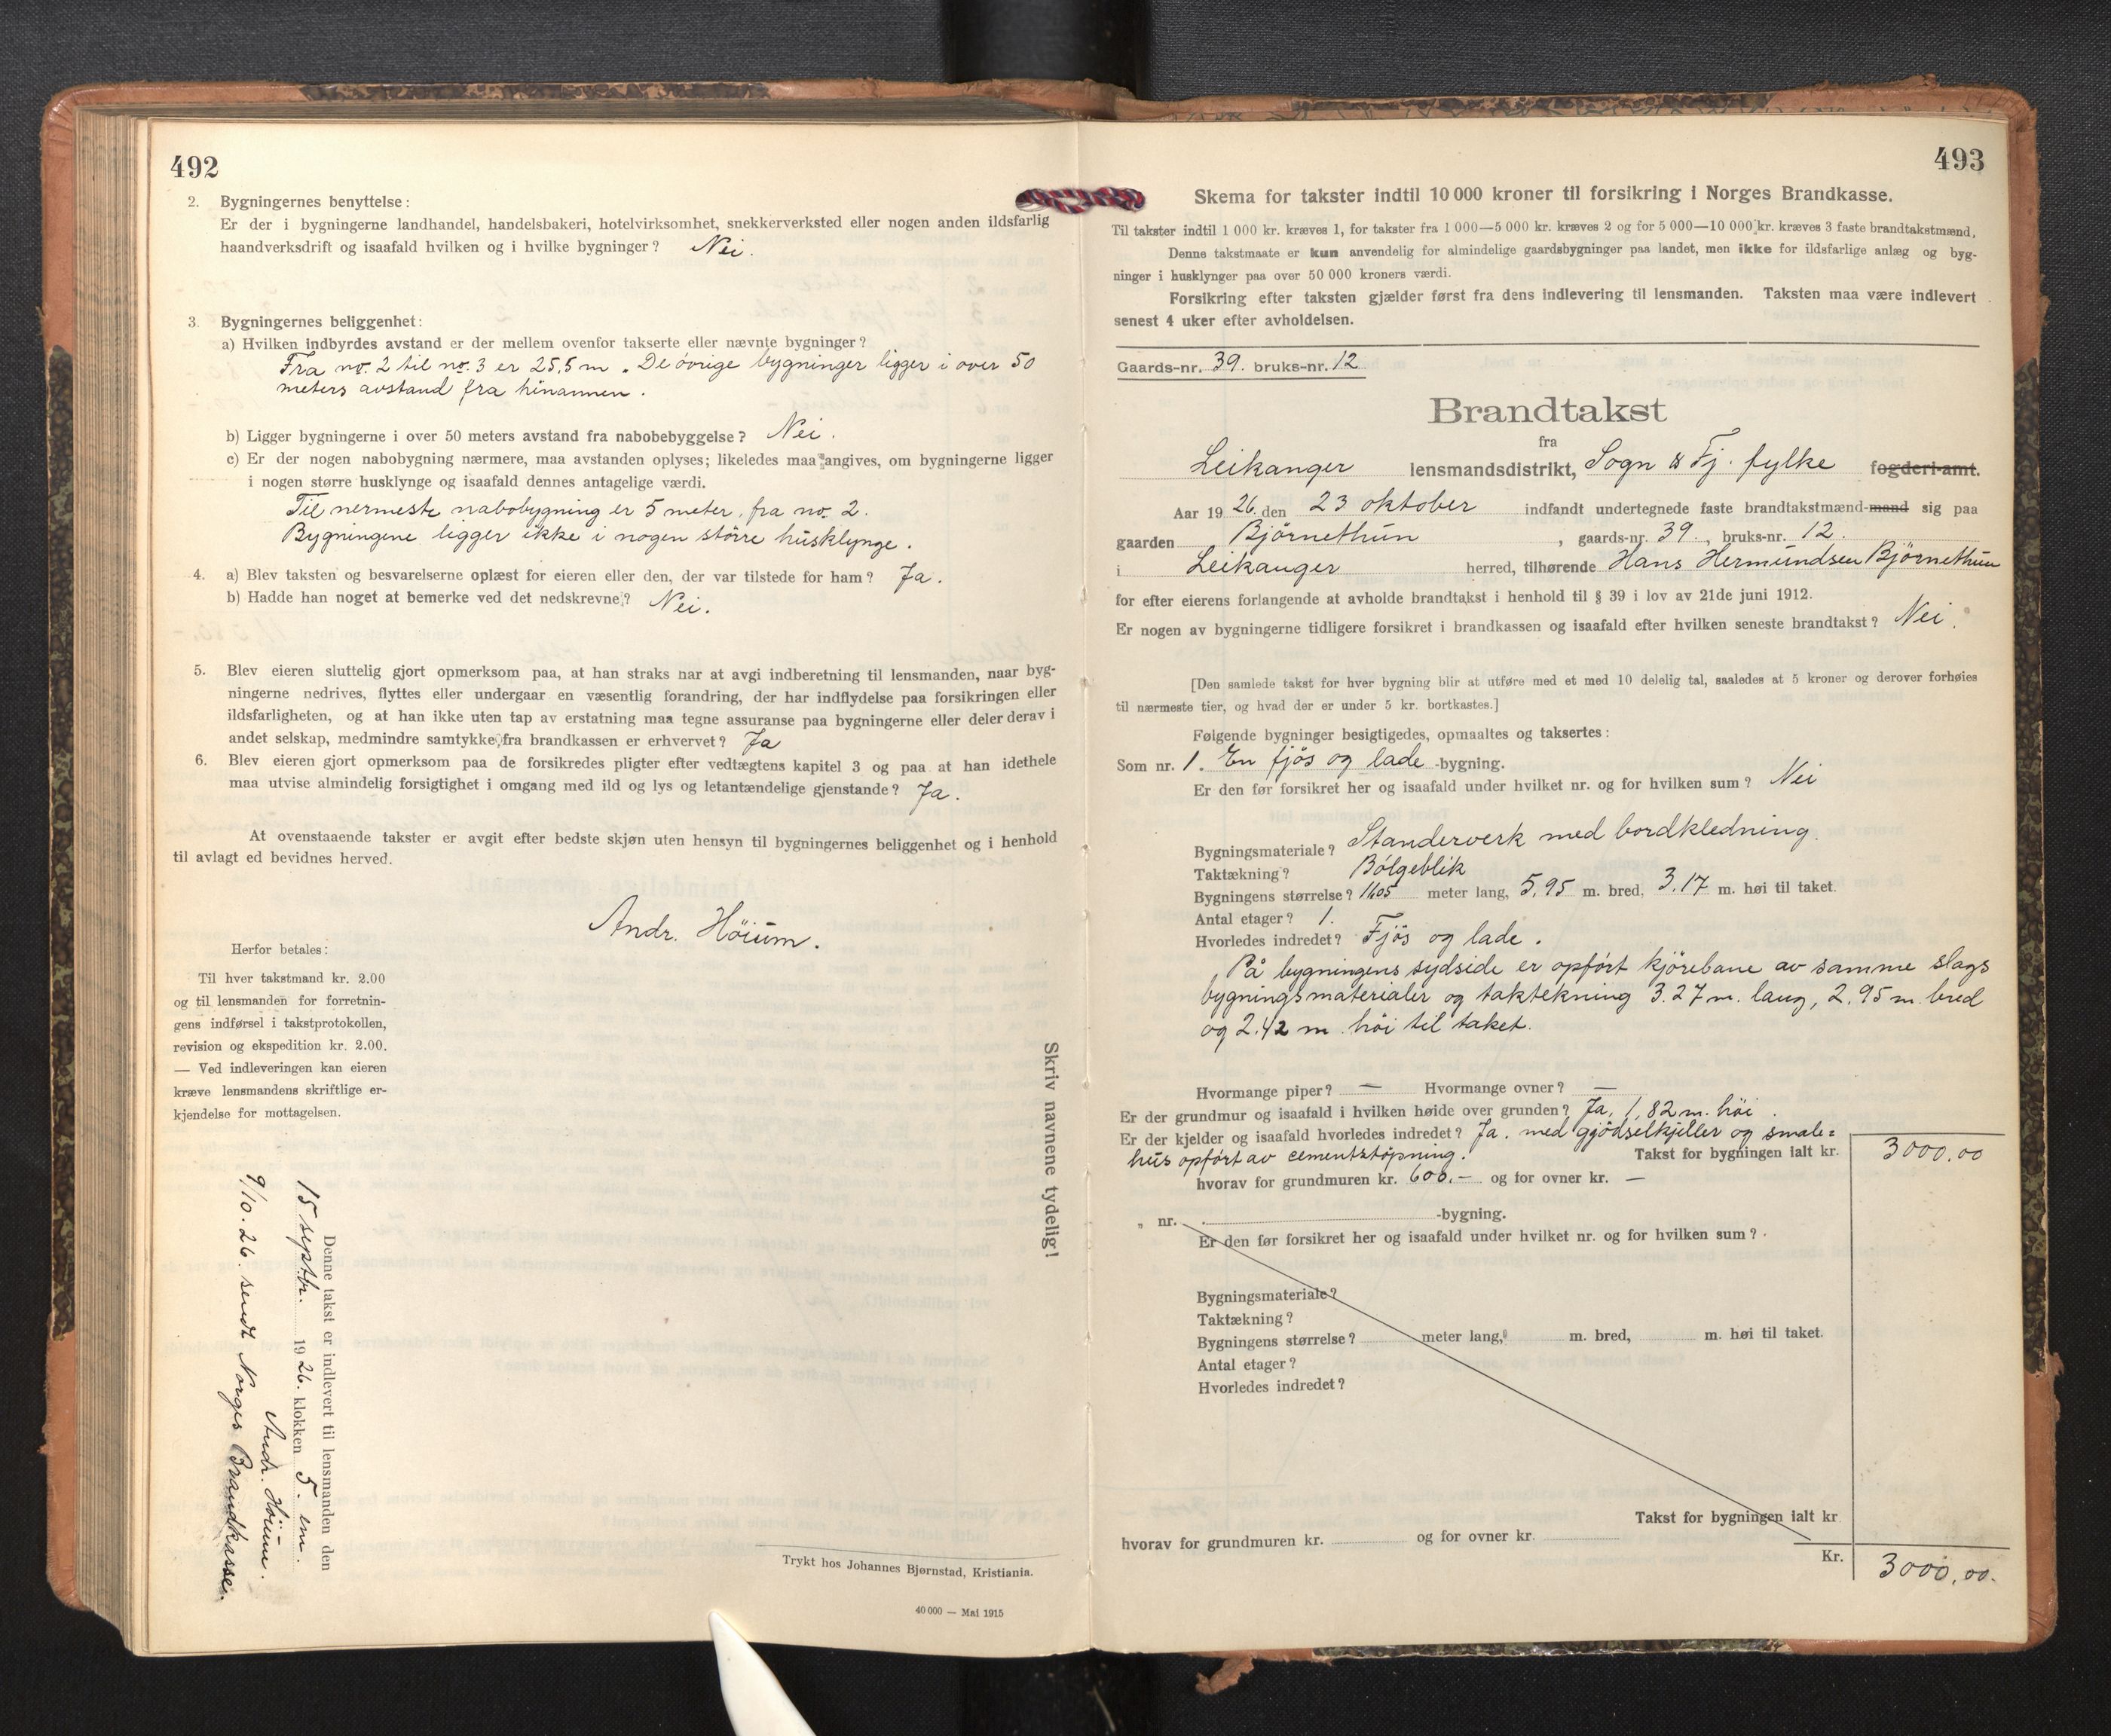 492
2. Bygningernes benyttelse:
Er der i bygningerne landhandel, handelsbakeri, hotelvirksomhet, snekkerverksted eller nogen anden ildsfarlig
haandverksdrift og isaafald hvilken og i hvilke bygninger? Nei.
3. Bygningernes beliggenhet:
a) Hvilken indbyrdes avstand er der mellem ovenfor takserte eller nævnte bygninger?
Fra no. 2 til no. 3 er 25,5 m. De øvrige bygninger ligger i over 50
meters avstand fra hinannen.
b) Ligger bygningerne i over 50 meters avstand fra nabobebyggelse? Nei.
c) Er der nogen nabobygning nærmere, maa avstanden oplyses; likeledes maa angives, om bygningerne ligger
i nogen større husklynge og isaafald dennes antagelige værdi.
Til nermeste nabobygning er 5 meter, fra no. 2.
Bygningene ligger ikke i nogen større husklynge.
4. a) Blev taksten og besvarelserne oplæst for eieren eller den, der var tilstede for ham? Ja.
b) Hadde han noget at bemerke ved det nedskrevne? Nei.
5. Blev eieren sluttelig gjort opmerksom paa, at han straks har at avgi indberetning til lensmanden, naar byg-
ningerne nedrives, flyttes eller undergaar en væsentlig forandring, der har indflydelse paa forsikringen eller
ildsfarligheten, og at han ikke uten tap av erstatning maa tegne assuranse paa bygningerne eller deler derav i
andet selskap, medmindre samtykke fra brandkassen er erhvervet? Ja
6. Blev eieren gjort opmerksom paa de forsikredes pligter efter vedtægtens kapitel 3 og paa at han idethele
maa utvise almindelig forsigtighet i omgang med ild og lys og letantændelige gjenstande? Ja.
At ovenstaaende takster er avgit efter bedste skjøn uten hensyn til bygningernes beliggenhet og i henhold
til avlagt ed bevidnes herved.
Andr. Høium.
Herfor betales:
Til hver takstmand kr. 2.00
og til lensmanden for forretnin-
gens indførsel i takstprotokollen,
revision og ekspedition kr. 2.00.
— Ved indleveringen kan eieren
kræve lensmandens skriftlige er-
kjendelse for mottagelsen.
Skriv navnene tydelig!
Denne takst er indlevert til lensmanden den
15 septbr. 1926. klokken 5. em.
Andr. Höium.
9/10. 26. sendt Norges Brandkasse.
Trykt hos Johannes Bjørnstad, Kristiania.
40 000 — Mai 1915
493
Skema for takster indtil 10 000 kroner til forsikring i Norges Brandkasse.
Til takster indtil 1 000 kr. kræves 1, for takster fra 1 000—5 000 kr. kræves 2 og for 5 000—10 000 kr. kræves 3 faste brandtakstmænd.
Denne takstmaate er kun anvendelig for almindelige gaardsbygninger paa landet, men ikke for ildsfarlige anlæg og byg-
ninger i husklynger paa over 50 000 kroners værdi.
Forsikring efter taksten gjælder først fra dens indlevering til lensmanden. Taksten maa være indlevert
senest 4 uker efter avholdelsen.
Gaards-nr. 39. bruks-nr. 12
Brandtakst
fra
Leikanger lensmandsdistrikt, Sogn & Fj. fylke fogderi-amt.
Aar 1926. den 23 oktober indfandt undertegnede faste brandtakstmænd-mand sig paa
gaarden Björnethun, gaards-nr. 39., bruks-nr. 12.
i Leikanger herred, tilhørende Hans Hermundsen Björnethun
for efter eierens forlangende at avholde brandtakst i henhold til § 39 i lov av 21de juni 1912.
Er nogen av bygningerne tidligere forsikret i brandkassen og isaafald efter hvilken seneste brandtakst? Nei.
[Den samlede takst for hver bygning blir at utføre med et med 10 delelig tal, saaledes at 5 kroner og derover forhøies
til nærmeste tier, og hvad der er under 5 kr. bortkastes.]
Følgende bygninger besigtigedes, opmaaltes og taksertes:
Som nr. 1. En fjös og lade -bygning.
Er den før forsikret her og isaafald under hvilket nr. og for hvilken sum? Nei
Bygningsmateriale? Standerverk med bordkledning.
Taktækning? Bölgeblik
Bygningens størrelse? 11.05 meter lang, 5,95 m. bred, 3.17 m. høi til taket.
Antal etager? 1.
Hvorledes indredet? Fjös og lade.
På bygningens sydside er opfört kjörebane av samme slags
bygningsmaterialer og taktekning 3.27 m. lang, 2,95 m. bred
og 2.42 m. höi til taket.
Hvormange piper? — Hvormange ovner? —
Er der grundmur og isaafald i hvilken høide over grunden? Ja, 1,82 m. höi.
Er der kjelder og isaafald hvorledes indredet? Ja. med gjödselkjeller og smale=
hus opfört av cementstöpning. Takst for bygningen ialt kr. 3000,00
hvorav for grundmuren kr. 600.— og for ovner kr. —
„ nr. -bygning.
Er den før forsikret her og isaafald under hvilket nr. og for hvilken sum?
Bygningsmateriale?
Taktækning?
Bygningens størrelse? meter lang, m. bred, m. høi til taket.
Antal etager?
Hvorledes indredet?
Takst for bygningen ialt kr
hvorav for grundmuren kr. og for ovner kr.
Kr. 3000,00.